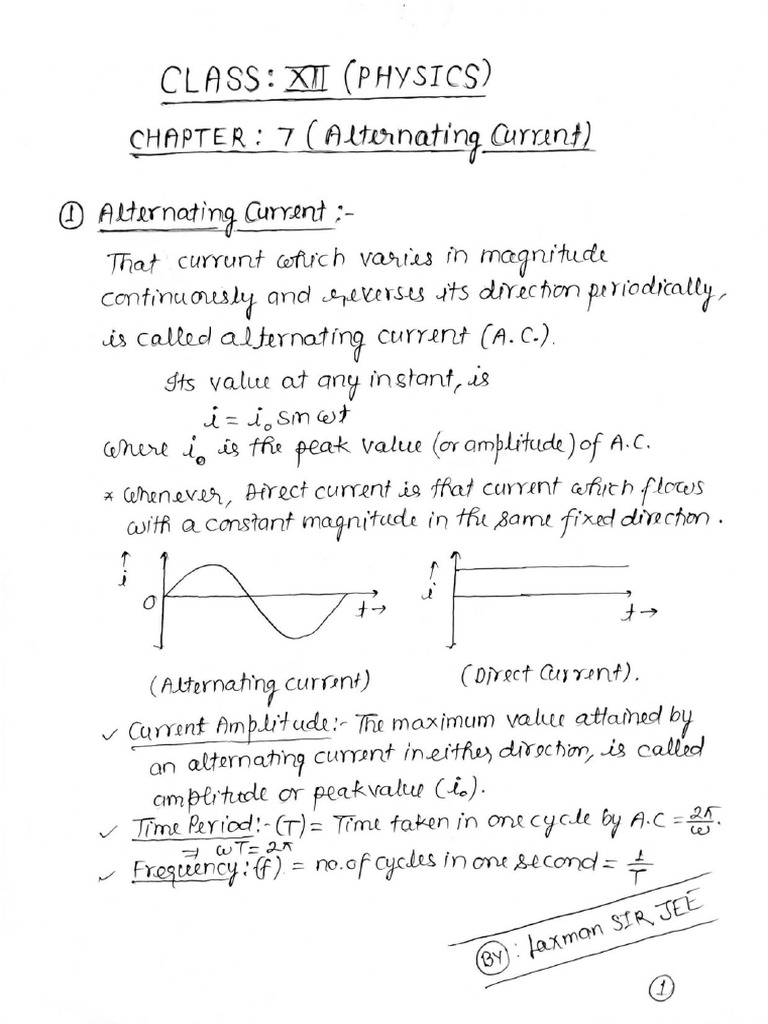 CLASS: XII (PHYSICS)
CHAPTER: 7 (Alternating Current)
① Alternating Current :-
That currunt which varies in magnitude
continuously and reverses its direction periodically,
is called alternating current (A.C.).
Its value at any instant, is
i = i₀ sin ωt
where i₀ is the peak value (or amplitude) of A.C.
* Whenever, Direct current is that current which flows
with a constant magnitude in the same fixed direction.
↑ i
O
t→
↑ i
t→
(Alternating current)
(Direct Current).
✓ Current Amplitude:- The maximum value attained by
an alternating current in either direction, is called
amplitude or peak value (i₀).
✓ Time Period:- (T) = Time taken in one cycle by A.C = 2π/ω.
⇒ ωT = 2π
✓ Frequency: (f) = no. of cycles in one second = 1/T
BY : Laxman SIR JEE
①